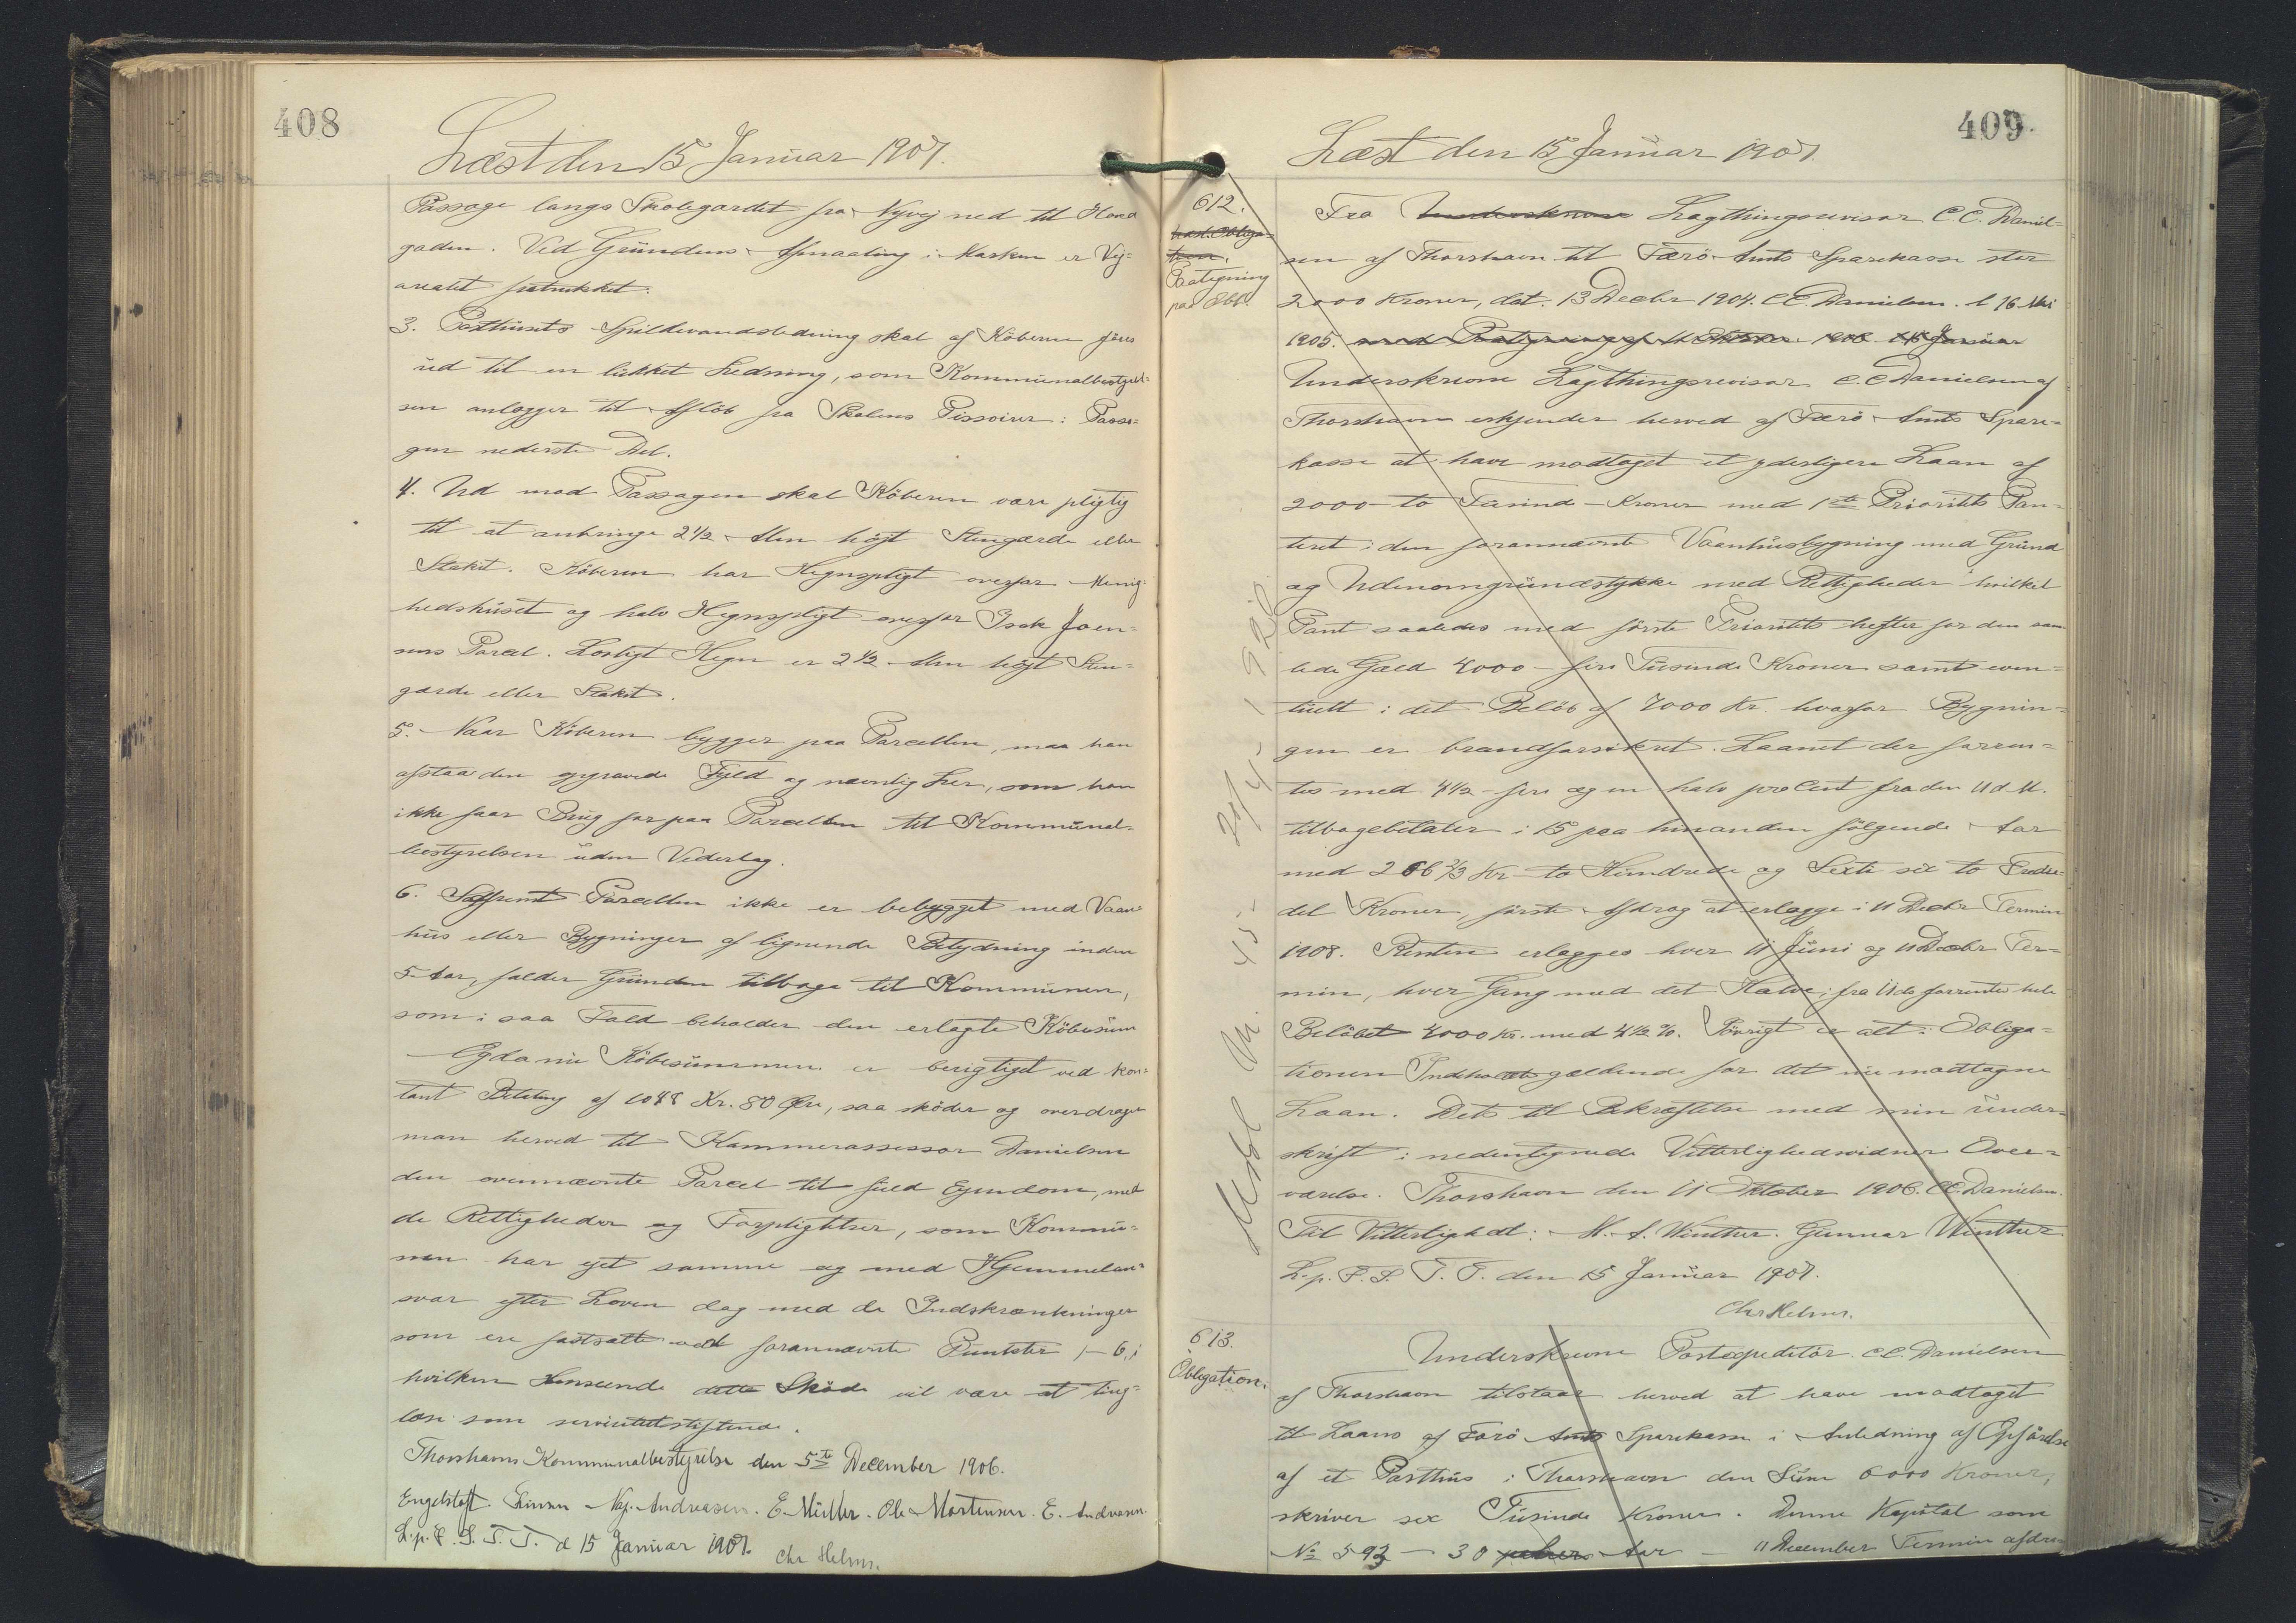 408
Læst den 15 Januar 1907.
Passage langs Skolegardet fra Nyvej ned til Hoved
gaden. Ved Grundens Afmaaling i Marken er Vej=
arealet fratrukket.
3. Posthusets Spildevandsledning skal af Köberen föres
ud til en lukket Ledning, som Kommunalbestyrel=
sen anlægger til Aflöb fra Skolens Pissoirer i Passa=
gen nederste Del.
4. Ud mod Passagen skal Köberen være pligtig
til at anbringe 2 1/2 Alen höjt Stengærde eller
Stakit. Köberen har Hegnspligt overfor Menig=
hedshuset og halv Hegnspligt overfor Isak Joen=
sens Parcel. Lovligt Hegn er 2 1/2 Alen höjt Sten=
gærde eller Stakit.
5. Naar Köberen bygger paa Parcellen, maa han
afstaa den opgravede Fyld og navnlig Ler, som han
ikke faar Brug for paa Parcellen til Kommunal=
bestyrelsen uden Vederlag.
6. Saafremt Parcellen ikke er bebygget med Vaan=
hus eller Bygninger af lignende Betydning inden
5 Aar, falder Grunden tilbage til Kommunen,
som i saa Fald beholder den erlagte Köbesum
Og da nu Köbesummen er berigtiget ved kon=
tant Betaling af 1048 Kr. 80 Øre, saa sköder og overdrager
man herved til Kammerassessor Danielsen
den ovennævnte Parcel til fuld Ejendom, med
de Rettigheder og Forpligtelser, som Kommu=
nen har ejet samme og med Hjemmelan=
svar efter Loven dog med de Indskrænkninger
som ere fastsatte ved forannævnte Punkter 1-6, i
hvilken Henseende dette Sköde vil være at ting=
læse som servitutstiftende.
Thorshavns Kommunalbestyrelse den 5te December 1906.
Engelstoft. Linsen Naj. Andreasen. E. Müller. Ole Mortensen. E. Andreasen.
L. p. F. S. T. T. d 15 Januar 1907. Chr Helms.
409.
Læst den 15 Januar 1907.
612.
Obliga=
tion.
Paategning
paa Obl.
Fra Underskrevne Lagthingsrevisor C.C. Daniel=
sen af Thorshavn til Færö Amts Sparekasse stor
2000 Kroner, dat. 13 Decbr 1904. CC Danielsen. l 16 Mai
1905. med Paategning af 11 Oktober 1906 l 15 Januar
Underskrevne Lagthingsrevisor C.C Danielsen af
Thorshavn erkjender herved af Færö Amts Spare=
kasse at have modtaget et yderligere Laan af
2000 - to Tusind - Kroner med 1ste Prioritets Pan=
teret i den forannævnte Vaanhusbygning med Grund
og Udenomgrundstykke med Rettigheder hvilket
Pant saaledes med förste Prioritets hefter for den sam
lede Gæld 4000 - fire Tusinde Kroner samt even=
tuelt i det Belöb af 7000 Kr. hvorfor Bygnin=
gen er brandforsikret. Laanet der forren=
tes med 4 1/2 - fire og en halv pro Cent fra den 11 d M.
tilbagebetaler i 15 paa hinanden fölgende Aar
med 266 2/3 Kr - to Hundrede og Sexti sex to Tredie=
del Kroner, förste Afdrag at erlægge i 11 Decbr Termin
1908. Renten erlægges hver 11 Juni og 11 Decbr Ter=
min, hver Gang med det Halve; fra 11 ds forrentes hele
Belöbet 4000 Kr. med 4 1/2 %. Iövrigt er alt i Obliga=
tionen Indeholdt gældende for det nu modtagne
Laan. Dets til Bekræftelse med min under=
skrift i nedentegnede Vitterlighedsvidners Over=
værelse. Thorshavn den 11 Oktober 1906. CC. Danielsen.
Til Vitterlighed: M. A. Winther. Gunnar Winther
L. p. F. S. T. T. den 15 Januar 1907.
Chr Helms.
613.
Obligation.
Underskrevne Postexpeditör C.C. Danielsen
af Thorshavn tilstaar herved at have modtaget
til Laans af Færö Amts Sparekasse i Anledning af Opförelse
af et Posthus i Thorshavn den Sum 6000 Kroner,
skriver sex Tusinde Kroner. Denne Kapital som
No 593 - 30 Aar - 11 December Termin afdra